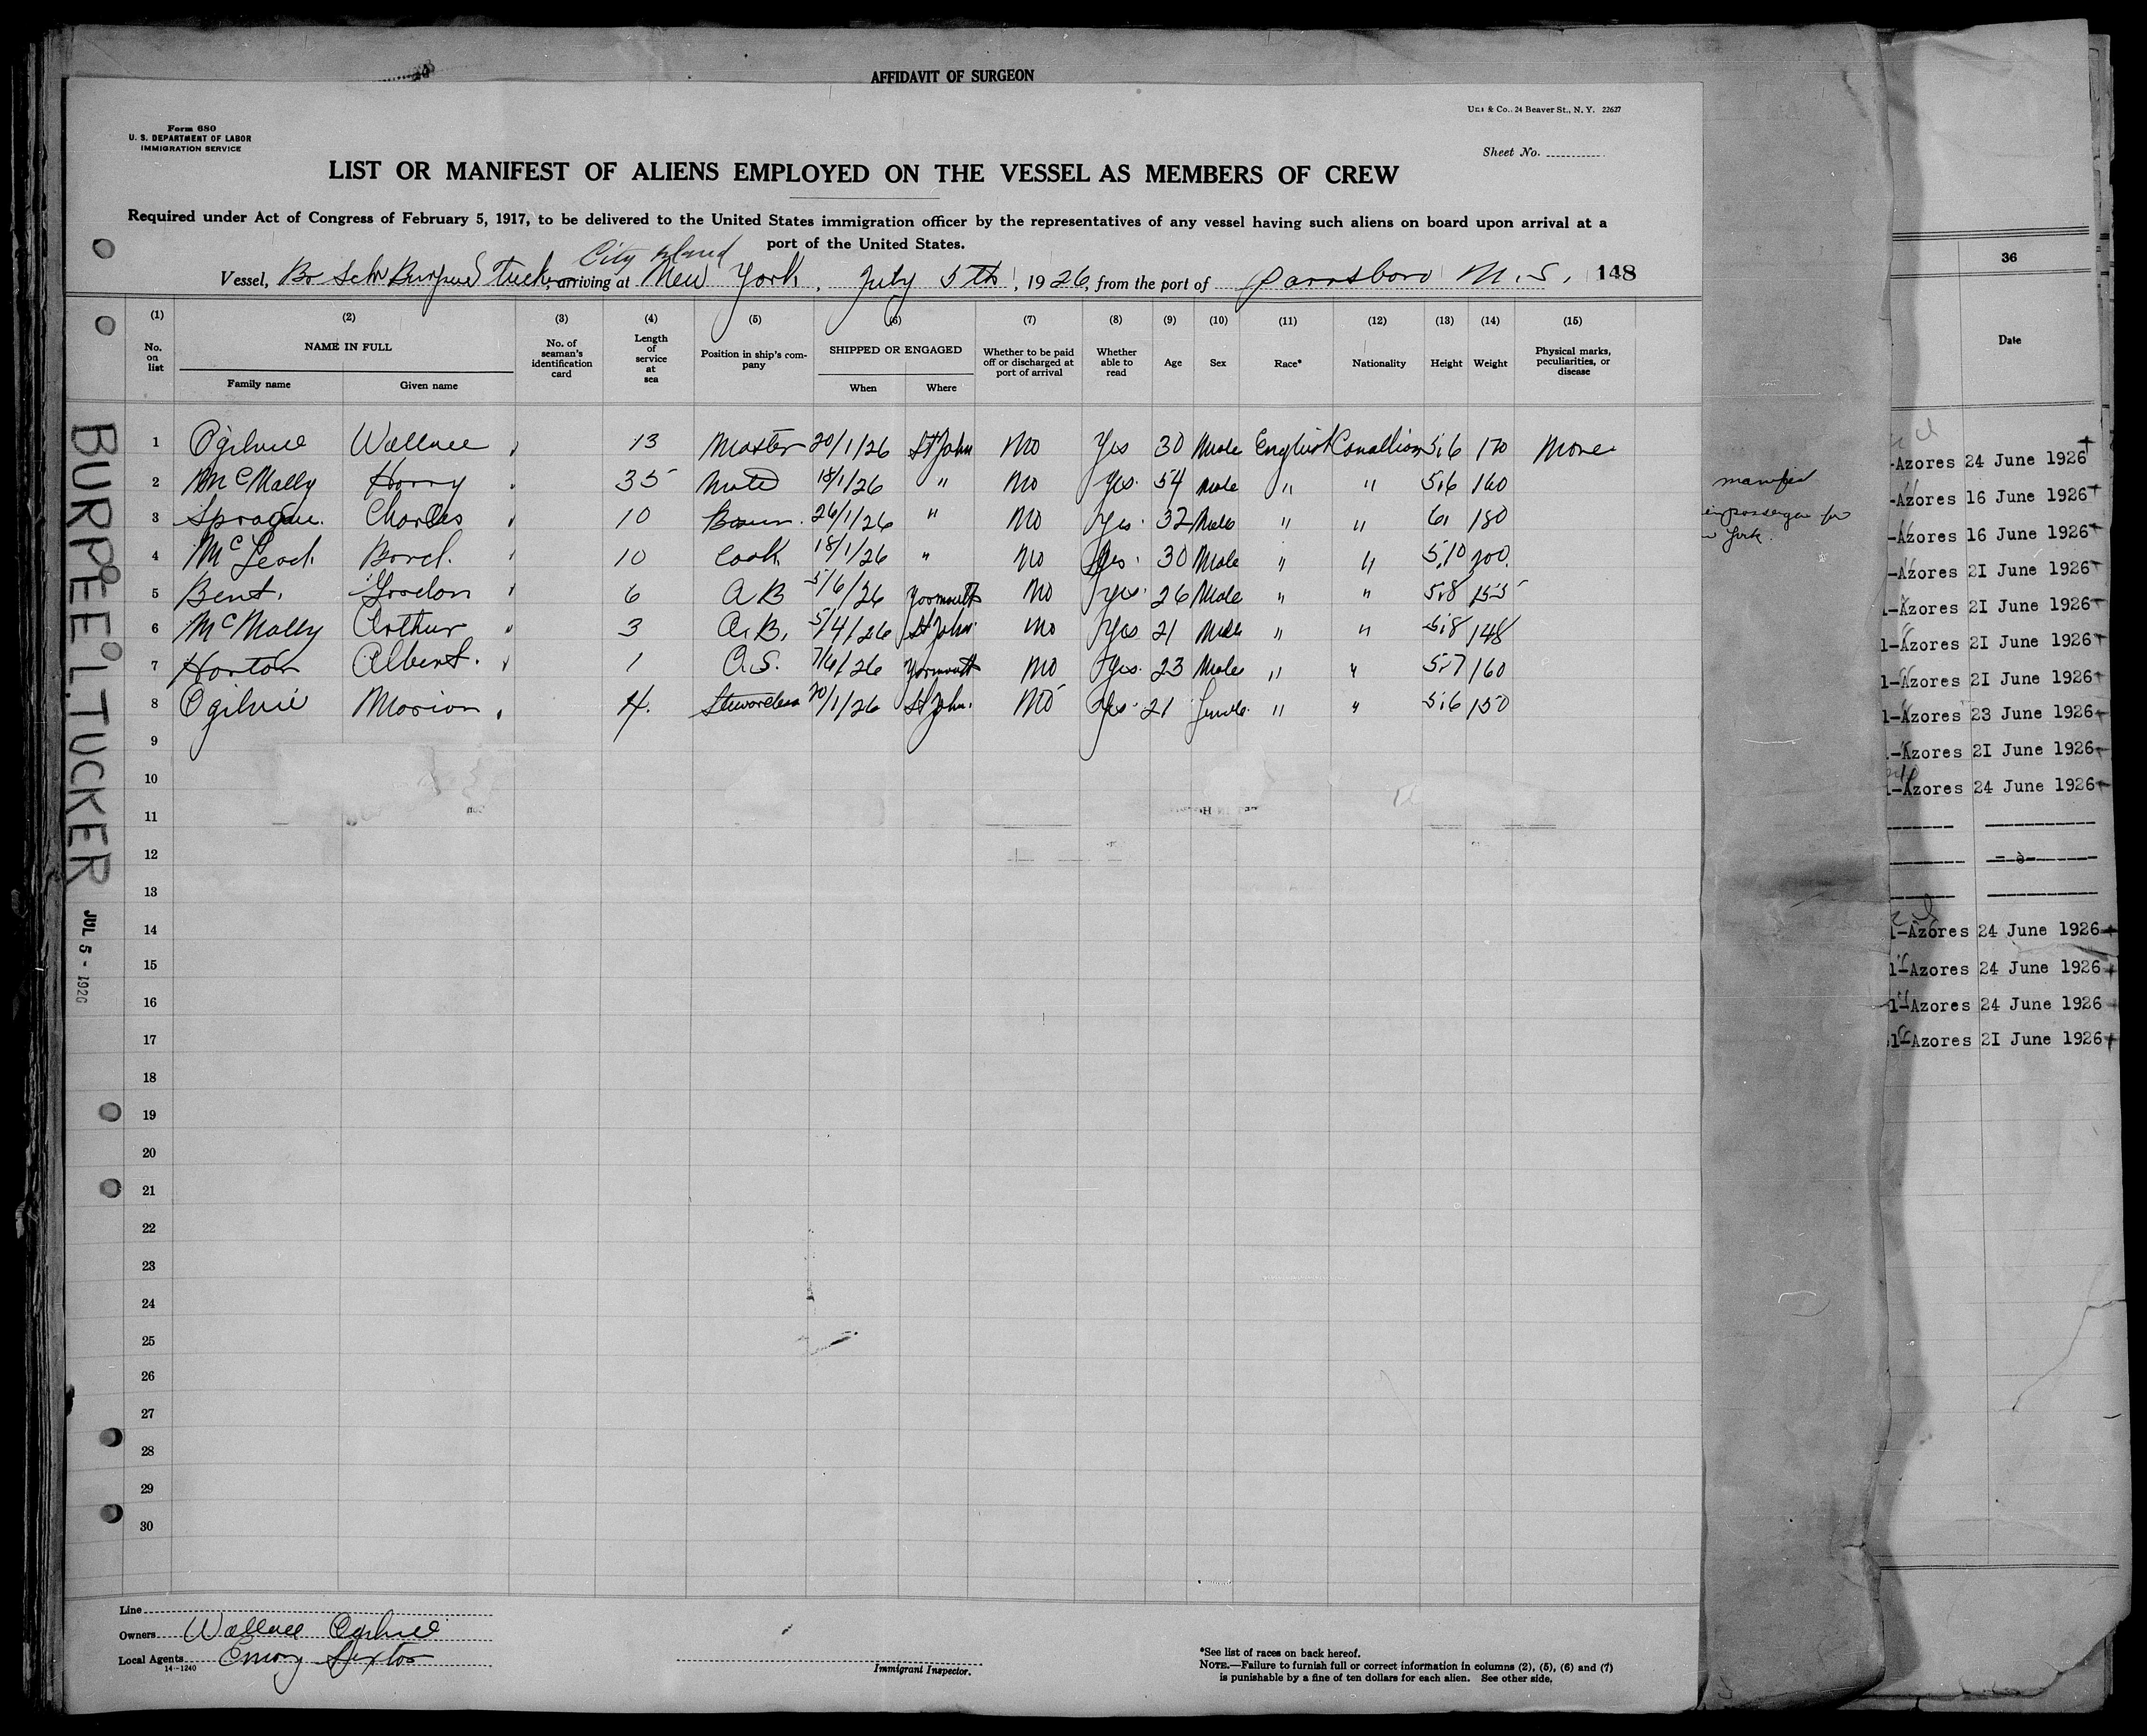 AFFIDAVIT OF SURGEON
Form 680
U. S. DEPARTMENT OF LABOR
IMMIGRATION SERVICE
& Co., 24 Beaver St., N. Y. 22627
Sheet No.
LIST OR MANIFEST OF ALIENS EMPLOYED ON THE VESSEL AS MEMBERS OF CREW
Required under Act of Congress of February 5, 1917, to be delivered to the United States immigration officer by the representatives of any vessel having such aliens on board upon arrival at a
port of the United States.
City Island
Vessel, Br Schr Burpee L Tucker, arriving at New York, July 5th, 1926, from the port of Parrsboro N.S, 148
(1) (2) (3) (4) (5) (6) (7) (8) (9) (10) (11) (12) (13) (14) (15)
No. on list NAME IN FULL Family name Given name No. of seaman's identification card Length of service at sea Position in ship's company SHIPPED OR ENGAGED When Where Whether to be paid off or discharged at port of arrival Whether able to read Age Sex Race* Nationality Height Weight Physical marks, peculiarities, or disease
1 Ogilvie Wallace 13 Master 20/1/26 St John No Yes 30 Male English Canadian 5.6 170 None
2 McNally Harry 35 Mate 18/1/26 " No Yes. 54 Male " " 5.6 160
3 Sprague. Charles 10 Bosun. 26/1/26 " No Yes. 32 Male " " 6, 180
4 McLeod. 10 Cook 18/1/26 " No Yes. 30 Male " " 5.10 200.
5 Bent. Gordon 6 A B 5/6/26 Yarmouth No Yes. 26 Male " " 5.8 155
6 McNally Arthur 3 A. B. 5/4/26 St John. No Yes 21 Male " " 5.8 148
7 Horton Albert. 1 O. S. 7/6/26 Yarmouth No Yes. 23 Male " " 5.7 160
8 Ogilvie Marion 4. Stewardess 20/1/26 St John. No Yes. 21 Female. " " 5.6 150
9
10
11
12
13
14
15
16
17
18
19
20
21
22
23
24
25
26
27
28
29
30
BURPEE L. TUCKER
JUL 5 - 1926
Line
Owners Wallace Ogilvie
Local Agents Emory Sexton
14-1240
Immigrant Inspector.
*See list of races on back hereof.
NOTE.—Failure to furnish full or correct information in columns (2), (5), (6) and (7)
is punishable by a fine of ten dollars for each alien. See other side.
manifest
passenger for
York.
36
Date
-Azores 24 June 1926
-Azores 16 June 1926
-Azores 16 June 1926
-Azores 21 June 1926
l-Azores 21 June 1926
l-Azores 21 June 1926
l-Azores 21 June 1926
l-Azores 23 June 1926
-Azores 21 June 1926
l-Azores 24 June 1926
l-Azores 24 June 1926
l-Azores 24 June 1926
l-Azores 24 June 1926
l-Azores 21 June 1926